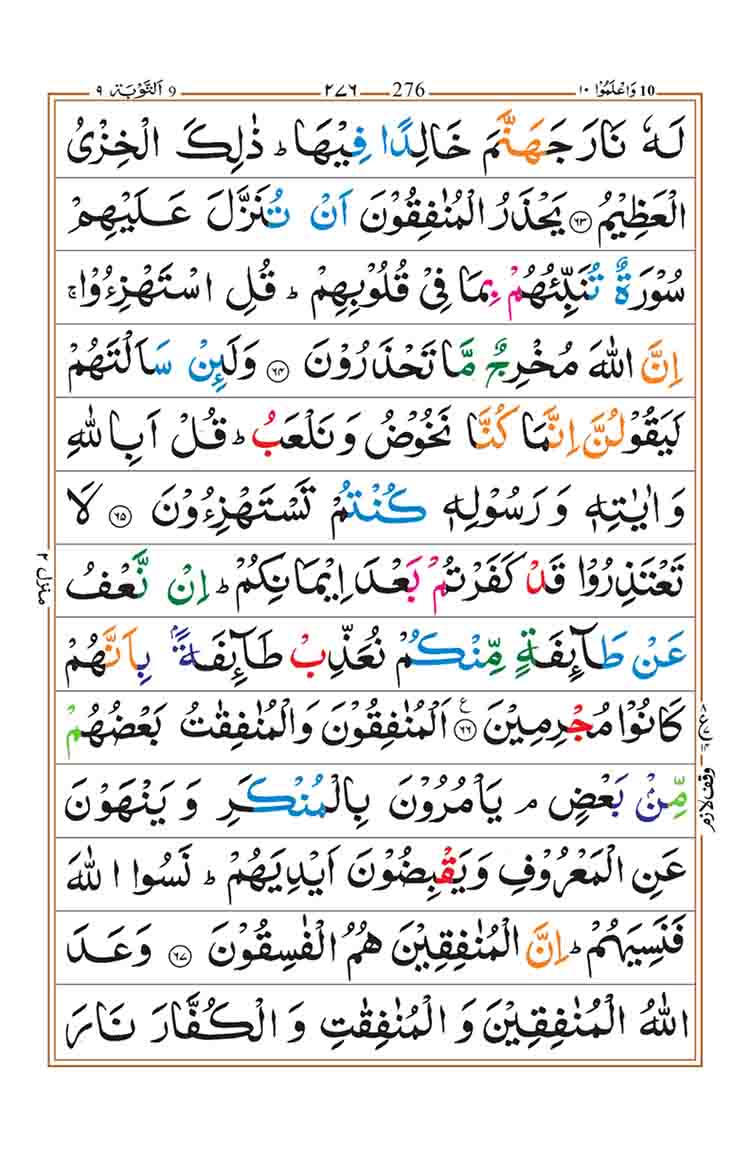 10 وَاعْلَمُوْۤا ١٠ 276 ٢٧٦ 9 اَلتَّوْبَة ٩
لَهٗ نَارَ جَهَنَّمَ خَالِدًا فِيْهَا ؕ ذٰلِكَ الْخِزْىُ
الْعَظِيْمُ ۝٦٣ يَحْذَرُ الْمُنٰفِقُوْنَ اَنْ تُنَزَّلَ عَلَيْهِمْ
سُوْرَةٌ تُنَبِّئُهُمْ بِمَا فِىْ قُلُوْبِهِمْ ؕ قُلِ اسْتَهْزِءُوْا ۚ
اِنَّ اللّٰهَ مُخْرِجٌ مَّا تَحْذَرُوْنَ ۝٦٤ وَلَئِنْ سَاَلْتَهُمْ
لَيَقُوْلُنَّ اِنَّمَا كُنَّا نَخُوْضُ وَنَلْعَبُ ؕ قُلْ اَبِاللّٰهِ
وَاٰيٰتِهٖ وَرَسُوْلِهٖ كُنْتُمْ تَسْتَهْزِءُوْنَ ۝٦٥ لَا
تَعْتَذِرُوْا قَدْ كَفَرْتُمْ بَعْدَ اِيْمَانِكُمْ ؕ اِنْ نَّعْفُ
عَنْ طَآئِفَةٍ مِّنْكُمْ نُعَذِّبْ طَآئِفَةًۢ بِاَنَّهُمْ
كَانُوْا مُجْرِمِيْنَ ۝٦٦ ع اَلْمُنٰفِقُوْنَ وَالْمُنٰفِقٰتُ بَعْضُهُمْ
مِّنْۢ بَعْضٍ ۘ يَاْمُرُوْنَ بِالْمُنْكَرِ وَيَنْهَوْنَ
عَنِ الْمَعْرُوْفِ وَيَقْبِضُوْنَ اَيْدِيَهُمْ ؕ نَسُوا اللّٰهَ
فَنَسِيَهُمْ ؕ اِنَّ الْمُنٰفِقِيْنَ هُمُ الْفٰسِقُوْنَ ۝٦٧ وَعَدَ
اللّٰهُ الْمُنٰفِقِيْنَ وَالْمُنٰفِقٰتِ وَالْكُفَّارَ نَارَ
منزل ٢
وقف لازم